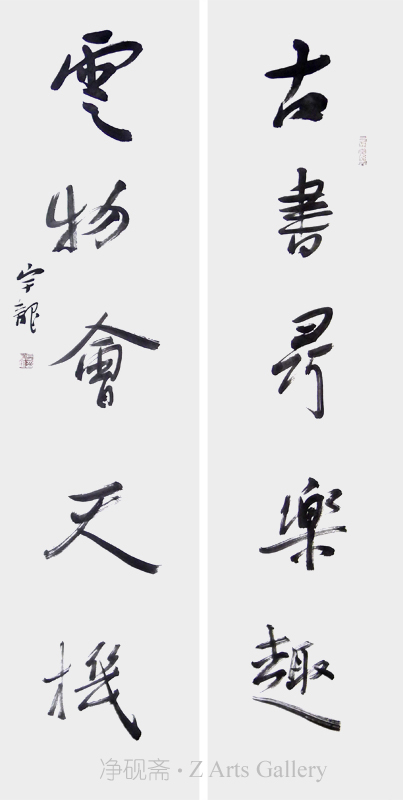 古書尋樂趣
雲物會天機
宇龍
净砚斋·Z Arts Gallery